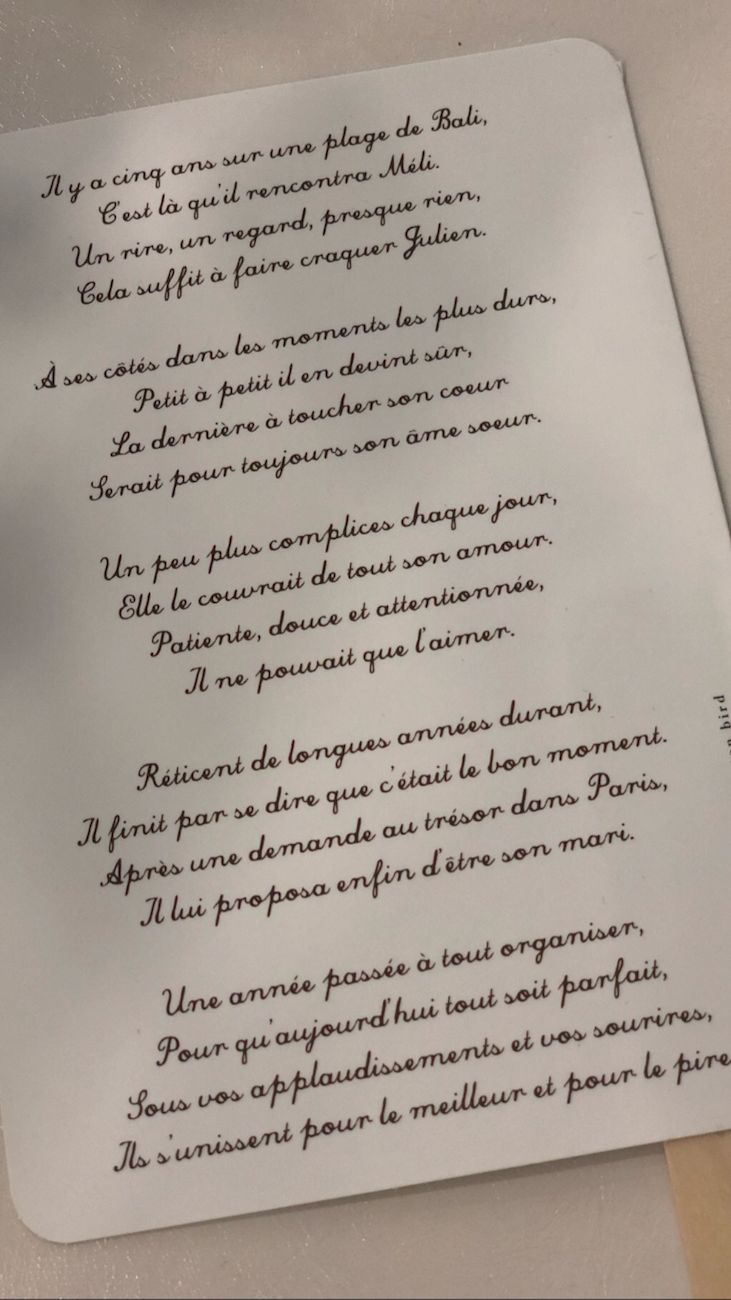 Il y a cinq ans sur une plage de Bali,
C'est là qu'il rencontra Méli.
Un rire, un regard, presque rien,
Cela suffit à faire craquer Julien.
À ses côtés dans les moments les plus durs,
Petit à petit il en devint sûr,
La dernière à toucher son coeur
Serait pour toujours son âme soeur.
Un peu plus complices chaque jour,
Elle le couvrait de tout son amour.
Patiente, douce et attentionnée,
Il ne pouvait que l'aimer.
Réticent de longues années durant,
Il finit par se dire que c'était le bon moment.
Après une demande au trésor dans Paris,
Il lui proposa enfin d'être son mari.
Une année passée à tout organiser,
Pour qu'aujourd'hui tout soit parfait,
Sous vos applaudissements et vos sourires,
Ils s'unissent pour le meilleur et pour le pire
bird